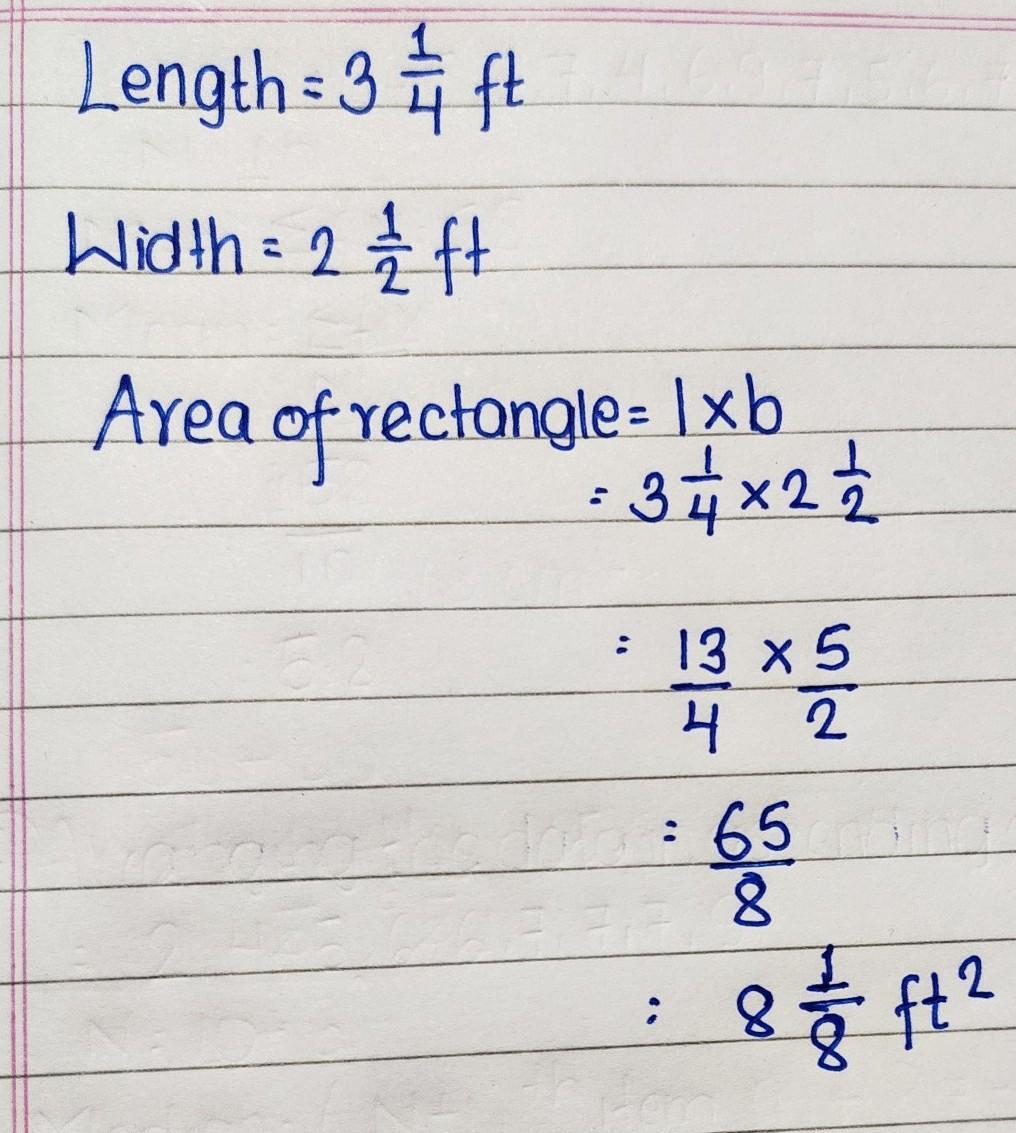 Length = 3 1/4 ft
Width = 2 1/2 ft
Area of rectangle = l x b
= 3 1/4 x 2 1/2
= 13/4 x 5/2
= 65/8
= 8 1/8 ft²